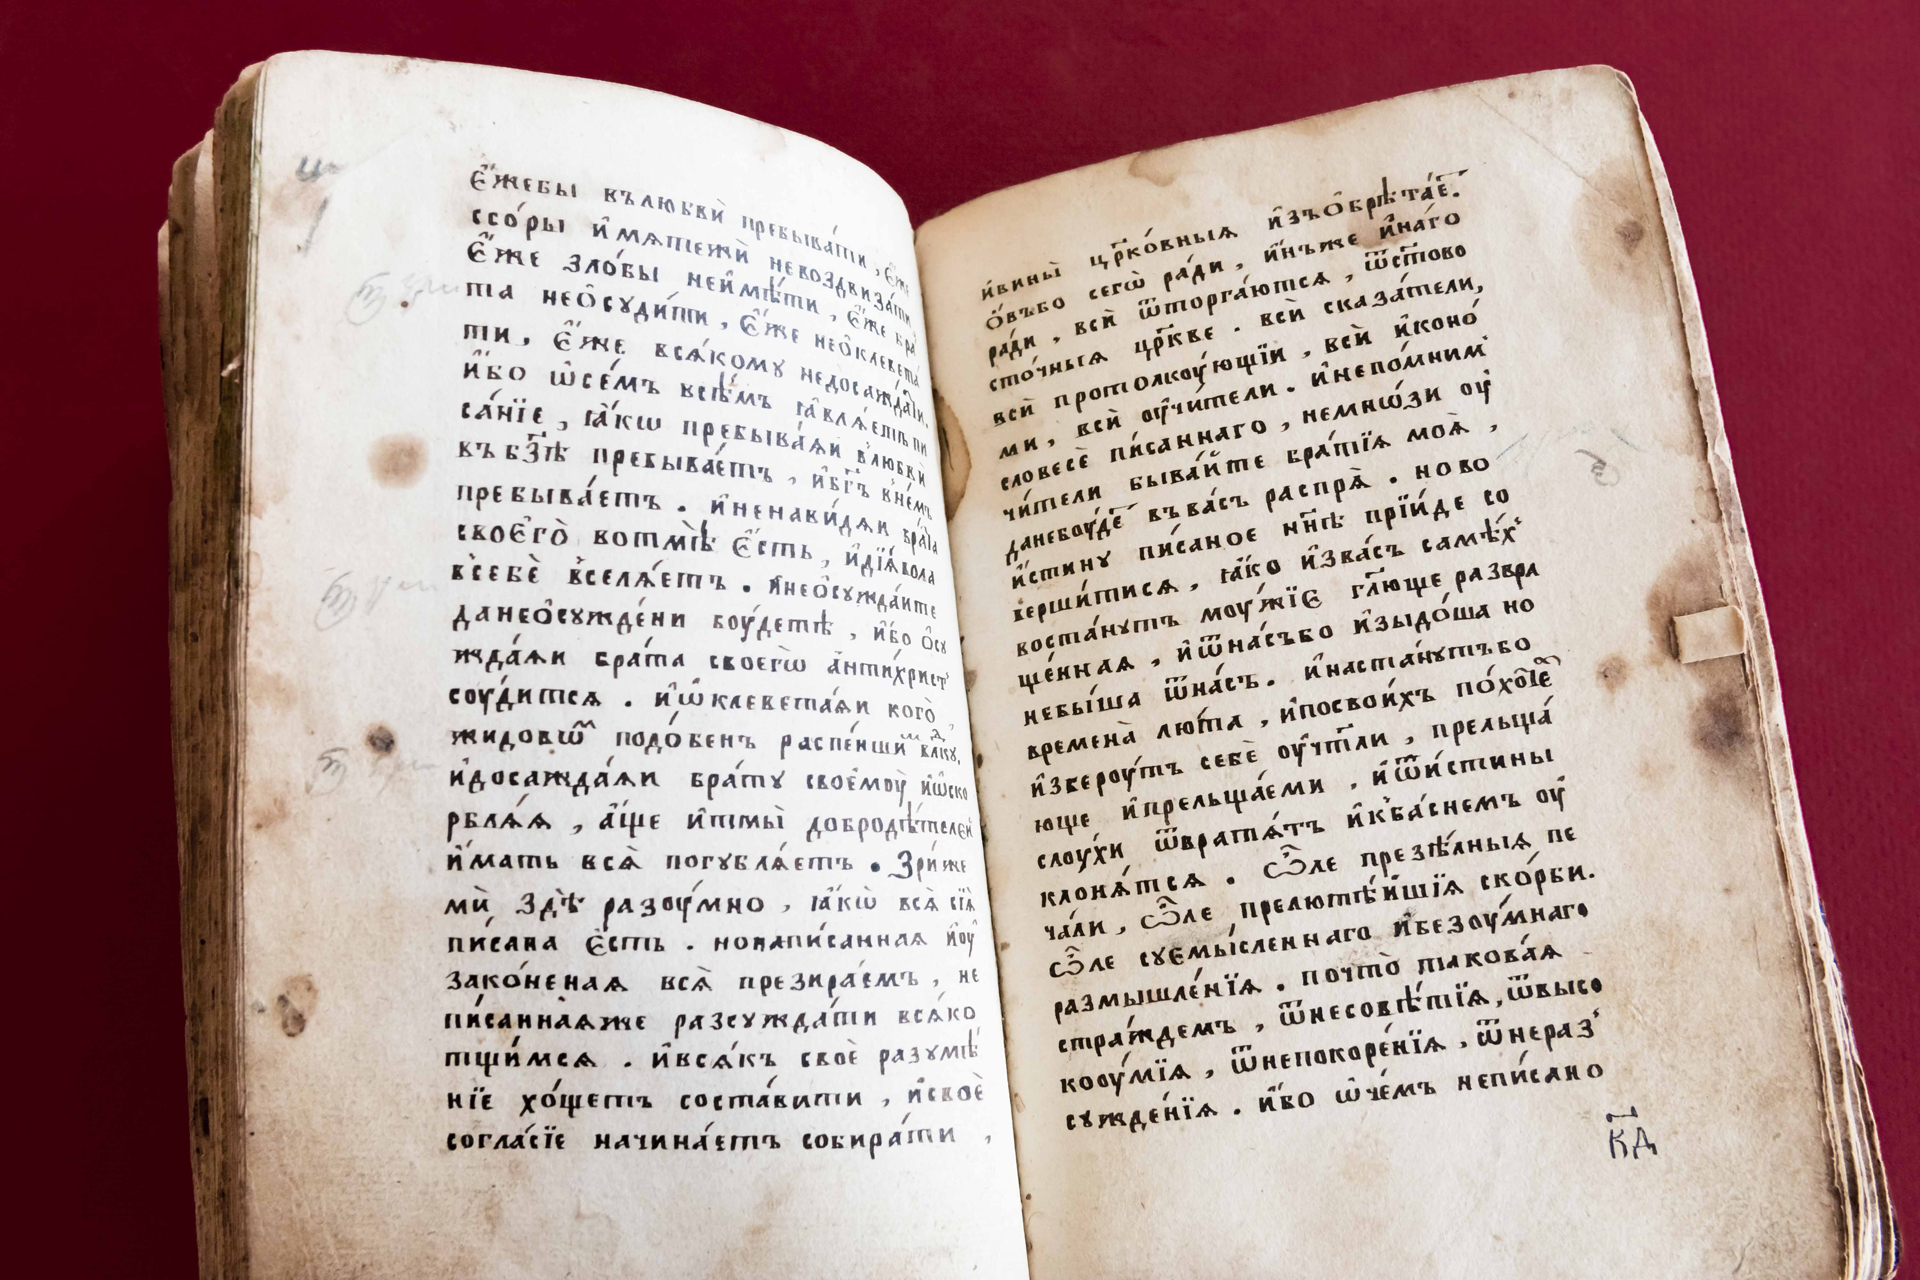 є҆́жебы вълюбвѝ пребыва́ти, є҆́же
ссо́ры и҆мѧтежѝ невоздвиза́ти
є҆́же зло́бы неи҆мѣ́ти, є҆́же бра
та нео҆суди́ти, є҆́же нео҆клевета
ти, є҆́же всѧ́кому недосажда́ти.
и҆́бо ѡ҆се́мъ всѣ́мъ ꙗ҆влѧ́етъ пи
са́нїе, ꙗ҆́кѡ пребыва́ѧи в̾любвѝ
въ бз҃ѣ пребыва́етъ, и҆бг҃ъ в̾не́мъ
пребыва́етъ. и҆ненави́дѧи бра́та
своєго̀ вотмѣ̀ є҆́сть, и҆дїѧ́вола
в̾себѐ в̾селѧ́етъ. и҆нео҆сужда́ите
данео҆сужде́ни боу́детѣ, и҆́бо о҆су
жда́ѧи бра́та своегѡ̀ а҆нти́христ
соу́дитсѧ. и҆ѡ҆клевета́ѧи кого̀,
жидовѡⷨ подо́бенъ распе́ншиⷨ влⷣку,
и҆досажда́ѧи бра́ту своємоу̀ и҆ѡ҆ско
рблѧ́ѧ, а҆́ще и҆тмы̀ добродѣ́телей
и҆́мать всѧ̀ погублѧ́етъ. Зри́же
мѝ здѣ̀ разоу́мно, ꙗ҆́кѡ всѧ̀ сїѧ̀
пи́сана є҆́сть. нонапи́саннаѧ и҆оу҆
зако́ненаѧ всѧ̀ презира́емъ, не
пи́саннаѧже разсужда́ти всѧ́ко
тщи́мсѧ. и҆всѧ́къ своѐ разумѣ́
нїе хо́щетъ соста́вити, и҆своѐ
согла́сїе начина́етъ собира́ти,
и҆вины̀ цр҃ко́вныѧ и҆зъо҆брѣта́е.
о҆́въбо сегѡ̀ ра́ди, и҆́нъже и҆на́го
ра́ди, всѝ ѿторга́ютсѧ, ѿст҃ово
сто́чныѧ цр҃кве. всѝ сказа́тели,
всѝ протолкоу́ющїи, всѝ и҆коно́
ми, всѝ оу҆чи́тели. и҆непо́мним
словесѐ пи́саннаго, немнѡ́зи оу҆
чи́тели быва́йте бра́тїѧ моѧ̀,
данебоу́де въва́съ распрѧ̀. ново
и҆́стину пи́саное нн҃ѣ прїи́де со
верши́тисѧ, ꙗ҆́ко и҆зва́съ самѣ́х
воста́нутъ моу́жїє гл҃юще развра
ще́ннаѧ, и҆ѿна́събо и҆зыдо́ша но
небы́ша ѿна́съ. и҆наста́нутъбо
времена̀ лю́та, и҆посвои́хъ по́хоⷮе
и҆збероу́тъ себѐ оу҆чт҃ли, прельща́
юще и҆прельща́еми, и҆ѿи́стины
слоу́хи ѿвратѧ́тъ и҆кба́снемъ оу҆
клонѧ́тсѧ. Ѽле презѣ́лныѧ пе
ча́ли, ѽле прелютѣ́йшїѧ ско́рби.
ѽле суємы́сленнаго и҆безоу́мнаго
размышле́нїѧ. почто̀ таковаѧ
стра́ждемъ, ѿнесовѣ́тїѧ, ѿвысо
кооу́мїѧ, ѿнепокоре́нїѧ, ѿнераз
сужде́нїѧ. и҆́бо ѡ҆че́мъ непи́сано
к҃д